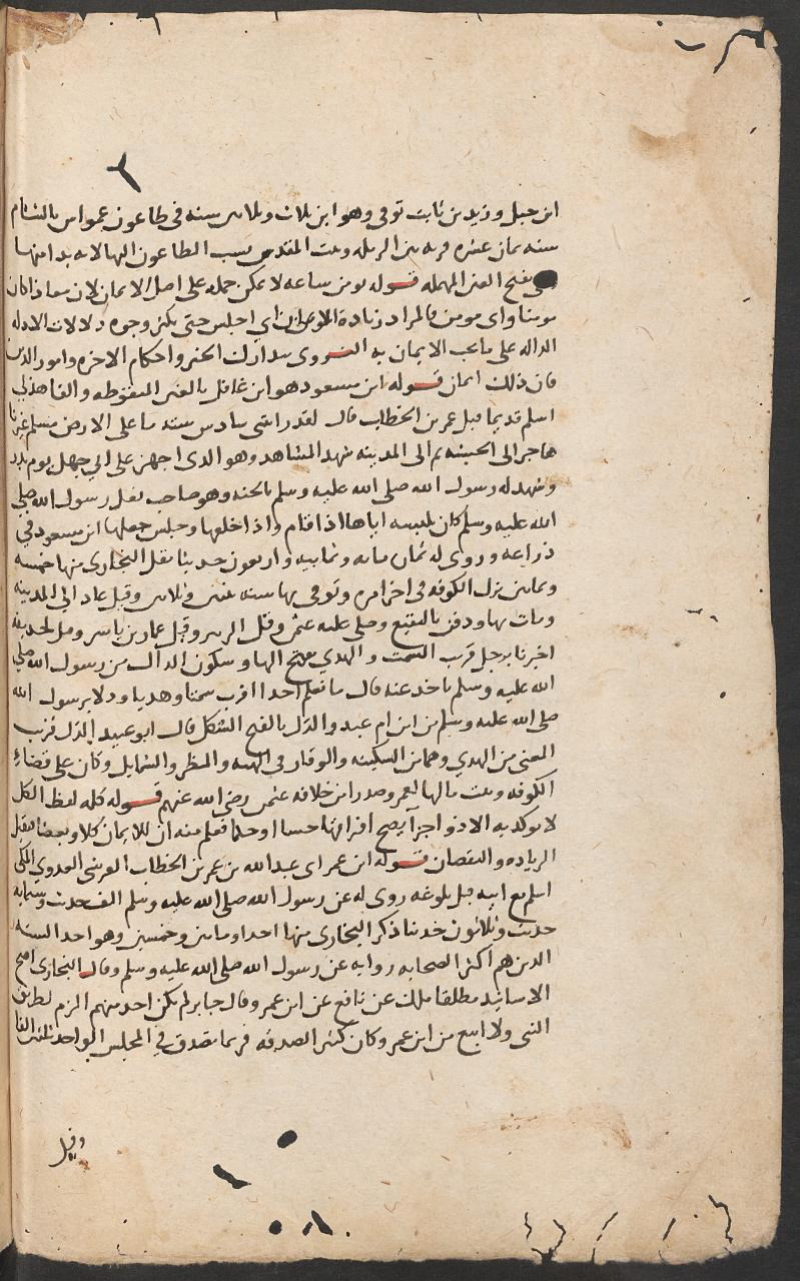 ٢
ابن جبل وزيد بن ثابت توفي وهو ابن ثلاث وثلاثين سنه في طاعون عمواس بالشام
سنه ثمان عشره قريه بين الرمله وبيت المقدس نسب الطاعون اليها لانه بدا منها
بفتح العين المهمله قوله نومن ساعه لا يمكن حمله على اصل الايمان لان معاذا كان
مومنا واي مومن فالمراد زيادة الايمان اي اجلس حتى يكثر وجوه دلالات الادله
الداله على ما يجب الايمان به النووي نتدارك الخير واحكام الاخره وامور الدين
فان ذلك ايمان قوله ابن مسعود هو ابن غافل بالغين المنقوطه والفا هذلي
اسلم قديما قبل عمر بن الخطاب قال لقد رايتني سادس سته ما على الارض مسلم غيرنا
هاجر الى الحبشه ثم الى المدينه شهد المشاهد وهو الذي اجهز على ابي جهل يوم بدر
وشهد له رسول الله صلى الله عليه وسلم بالجنه وهو صاحب نعل رسول الله صلى
الله عليه وسلم كان يلبسه اياها اذا قام واذا خلعها وجلس جعلها ابن مسعود في
ذراعه وروي له ثمان مائه وثمانيه واربعون حديثا نقل البخاري منها خمسه
وثمانين نزل الكوفه في اخر امره وتوفي بها سنه ثنتين وثلاثين وقيل عاد الى المدينه
ومات بها ودفن بالبقيع وصلى عليه عثمن وقيل الزبير وقيل عمار بن ياسر وقيل لحذيفه
اخبرنا برجل قريب السمت والهدي بفتح الها وسكون الدال من رسول الله صلى
الله عليه وسلم ناخذ عنه قال ما نعلم احدا اقرب سمتا وهديا ودلا برسول الله
صلى الله عليه وسلم من ابن ام عبد والدل بالفتح الشكل قال ابو عبيد الدل قريب
المعنى من الهدي وهما من السكينه والوقار في الهيئه والمنظر والشمايل وكان على قضاء
الكوفه وبيت مالها لعمر وصدرا من خلافه عثمن رضي الله عنهم قوله كله لفظ الكل
لا يوكد به الا ذو اجزآ يصح افتراقها حسا او حكما فعلم منه ان للايمان كلا وبعضا فيقبل
الزياده والنقصان قوله ابن عمر اي عبد الله بن عمر بن الخطاب القرشي العدوي المكي
اسلم مع ابيه قبل بلوغه روي له عن رسول الله صلى الله عليه وسلم الف حديث وستمايه
حديث وثلاثون حديثا ذكر البخاري منها احدا ومائتين وخمسين وهو احد السته
الذين هم اكثر الصحابه روايه عن رسول الله صلى الله عليه وسلم وقال البخاري اصح
الاسانيد مطلقا ملك عن نافع عن ابن عمر وقال جابر لم يكن احد منهم الزم لطريق
النبي ولا اتبع من ابن عمر وكان كثير الصدقه فربما تصدق في المجلس الواحد بثلثين الفا
وقيل